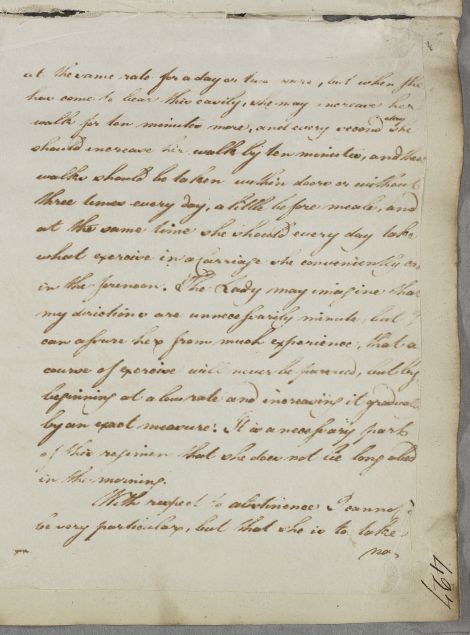 at the same rate for a day or two more, but when she
has come to bear this easily, she may increase her
walk for ten minutes more, and every second day She
should increase her walk by ten minutes, and these
walks should be taken within doors or without
three times every day, a little before meals, and
at the same time she should every day take
what exercise in a Carriage she conveniently can
in the forenoon. The Lady may imagine that
my directions are unnecessarily minute, but
can assure her from much experience, that a
course of exercise will never be pursued, but by
beginning at a low rate and increasing it gradual
by an exact measure. It is a necessary part
of this regimen that she does not lie long abed
in the morning.
With respect to abstinence I cannot
be very particular, but that she is to take
no